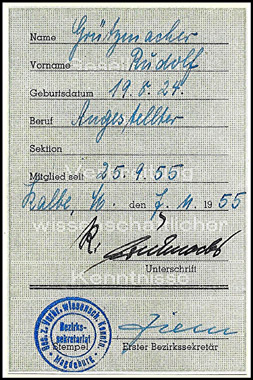 Name Grützmacher
Vorname Rudolf
Geburtsdatum 19.8.24.
Beruf Angestellter
Sektion
Verbreitung
Mitglied seit 25.9.55
Kalbe, M. den 7.11. 1955
wissenschaftlicher
R. Grützmacher
Unterschrift
Kenntnisse
Ges. z. Verbr. wissensch. Kenntn.
Bezirks-
sekretariat
Magdeburg
Stempel Erster Bezirkssekretär